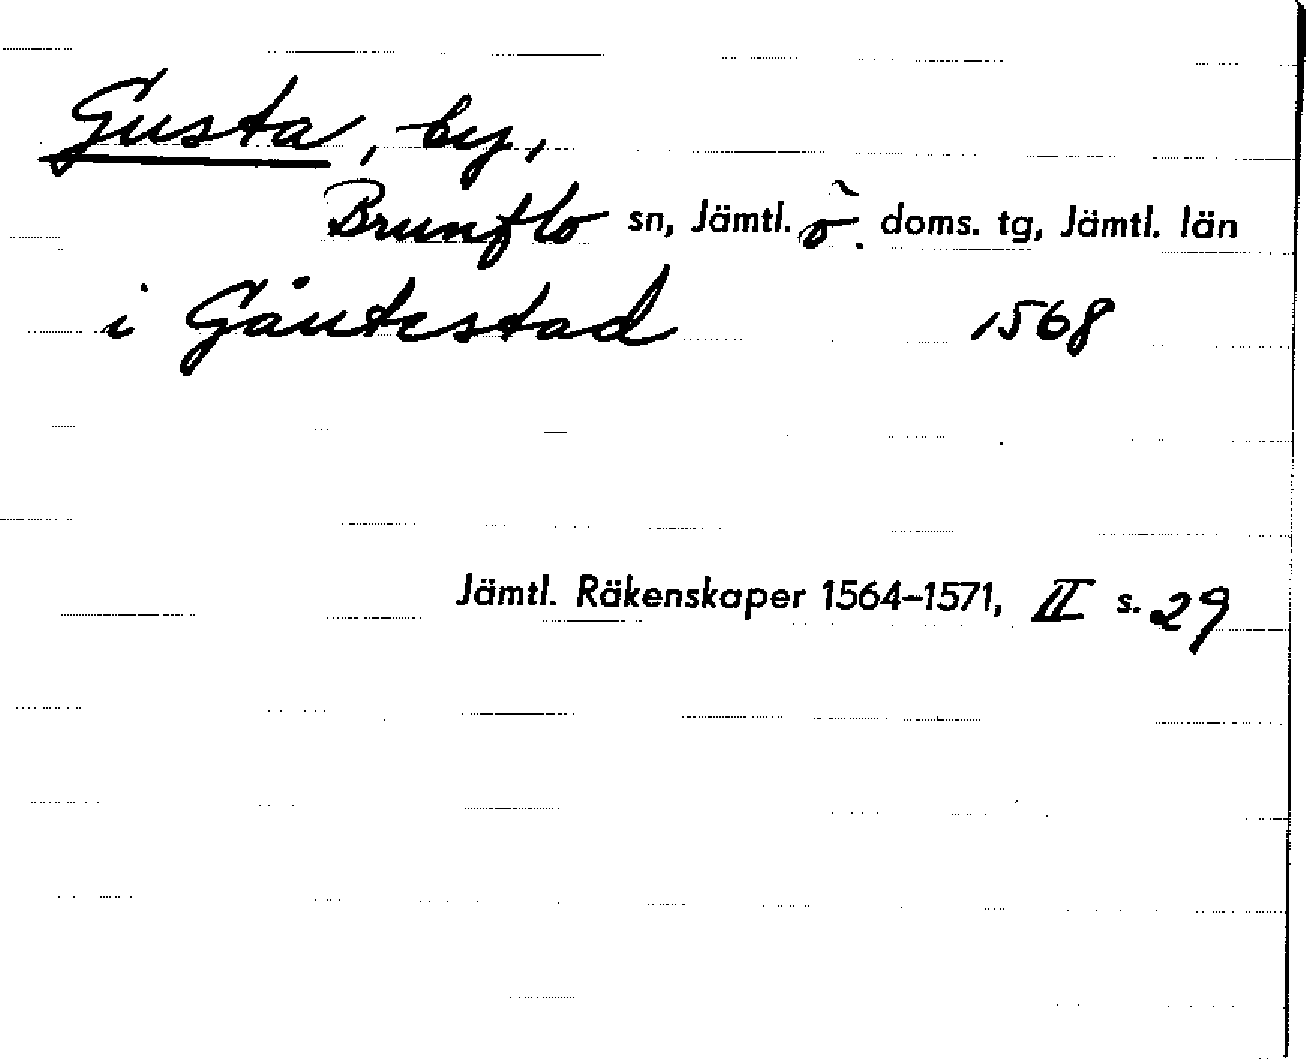 Gusta, by,
Brunflo sn, Jämtl. ö. doms. tg, Jämtl. län
i Gåutestad 1568
Jämtl. Räkenskaper 1564–1571, II s. 29